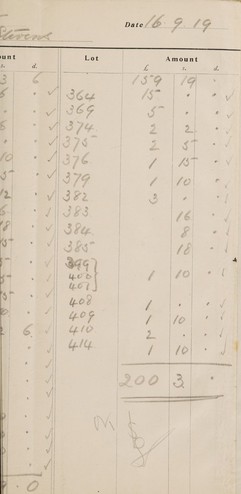 Date 16. 9. 19
Stevens
Amount Lot Amount
s. d. £. s. d.
3 6 159 19 .
364 15 . .
369 5 . .
374 2 2 .
375 2 5 .
10 . 376 1 15 .
379 1 10 .
12 . 382 3 . .
383 16 .
384 8 .
385 18 .
399
400 1 10 .
401
408 1 . .
409 1 10 .
6 410 2 . .
414 1 10 .
200 3 .
0